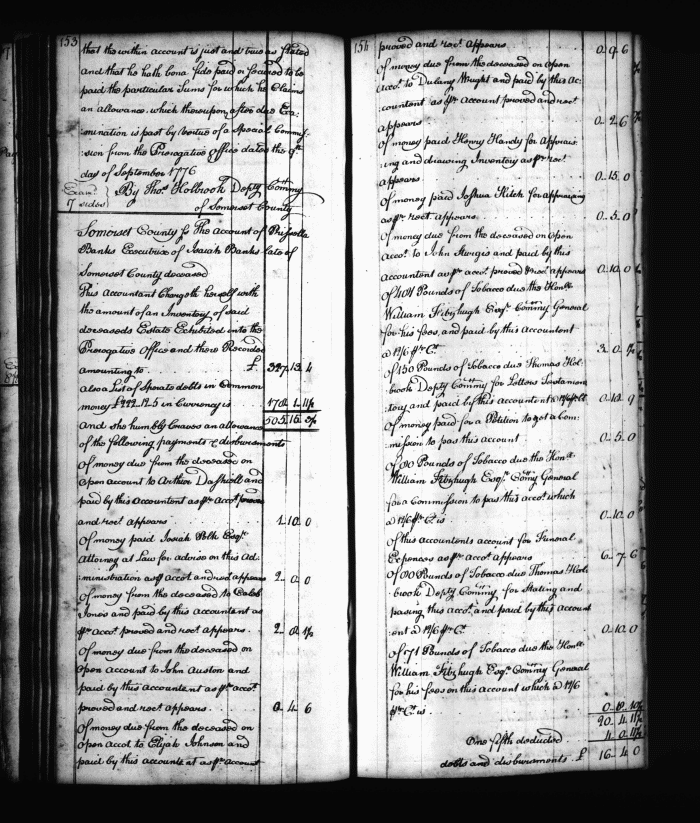 153
that the within account is just and true as Stated
and that he hath bona fide paid or secured to be
paid the particular Sums for which he Claims
an allowance, which thereupon, after due Exa:
:mination is past by Vertue of a Special Commis:
:sion from the Prerogative Office dated the 9th
day of September 1776
Exam.d } By Tho.s Holbrook Depty Commy
7 sides } of Somerset County
Somerset County Ss The Account of Priscilla
Banks Executrix of Isaiah Banks late of
Somerset County deceased
This Accountant Chargeth herself with
the amount of an Inventory of said
deceaseds Estate Exhibited into the
Prerogative Office and there Recorded
amounting to £ 327. 13. 4
also a List of Sperate debts in Common
money £222.12.5 in Currency is 178. 1. 11½
505. 15. 3½
and she humbly Craves an allowance
of the following payments & disbursments
Of money due from the deceased on
open account to Arthur Dashiell and
paid by this Accountant as pr Accot proved
and rect appears 1. 10. 0
Of money paid Josiah Polk Esqr
Attorney at Law for advise on this Ad:
:ministration as pr accot and rect appears 2. 0. 0
Of money from the deceased to Caleb
Jones and paid by this accountant as
pr Acco.t proved and rect appears. 2.
Of money due from the deceased on
open account to John Auston and
paid by this accountant as pr acco.t
proved and rect appears 0. 4. 6
Of money due from the deceased on
open Accot to Elijah Johnson and
paid by this accountant as pr account
154
proved and rect. appears 0. 9. 6
Of money due from the deceased on open
Acco.t to Dulany Wright and paid by this Ac:
:countant as pr Account proved and rect
appears 0. 2. 6
Of money paid Henry Handy for Apprais:
:ing and drawing Inventory as pr rect.
appears 0. 15. 0
Of money paid Joshua Hitch for appraising
as pr rect. appears 0. 5. 0
Of money due from the deceased on open
Acco.t to John Sturgis and paid by this
Accountant as pr acco.t proved & rect. appears 0. 10. 0
Of 404 Pounds of Tobacco due the Honble
William Fitzhugh Esqr Commy General
for his fees, and paid by this Accountant
@ 12/6 pr Ct.
Of 150 Pounds of Tobacco due Thomas Hol:
:brook Depty Commy for Letters Testamen:
:tory and paid by this accountant @ 12/6 pr Ct
Of money paid for a Petition to get a Com:
:mission to pas this account 0. 5. 0
Of 80 Pounds of Tobacco due the Honble
William Fitzhugh Esqr Commy General
for a Commission to pas this accot which
@ 12/6 pr Ct. is 0. 10. 0
Of this accountants account for Funeral
Expences as pr accot appears 6. 7. 6
Of 80 Pounds of Tobacco due Thomas Hol:
:brook Depty Commy, for Stating and
pasing this accot, and paid by this Account:
:ant @ 12/6 pr Ct. 0. 10. 0
Of 71 Pounds of Tobacco due the Honble
William Fitzhugh Esqr Commy General
for his fees on this account which @ 12/6
pr Ct. is
20. 4. 11½
One fifth deducted 4. 0. 11½
debts and disbursments £ 16. 4. 0